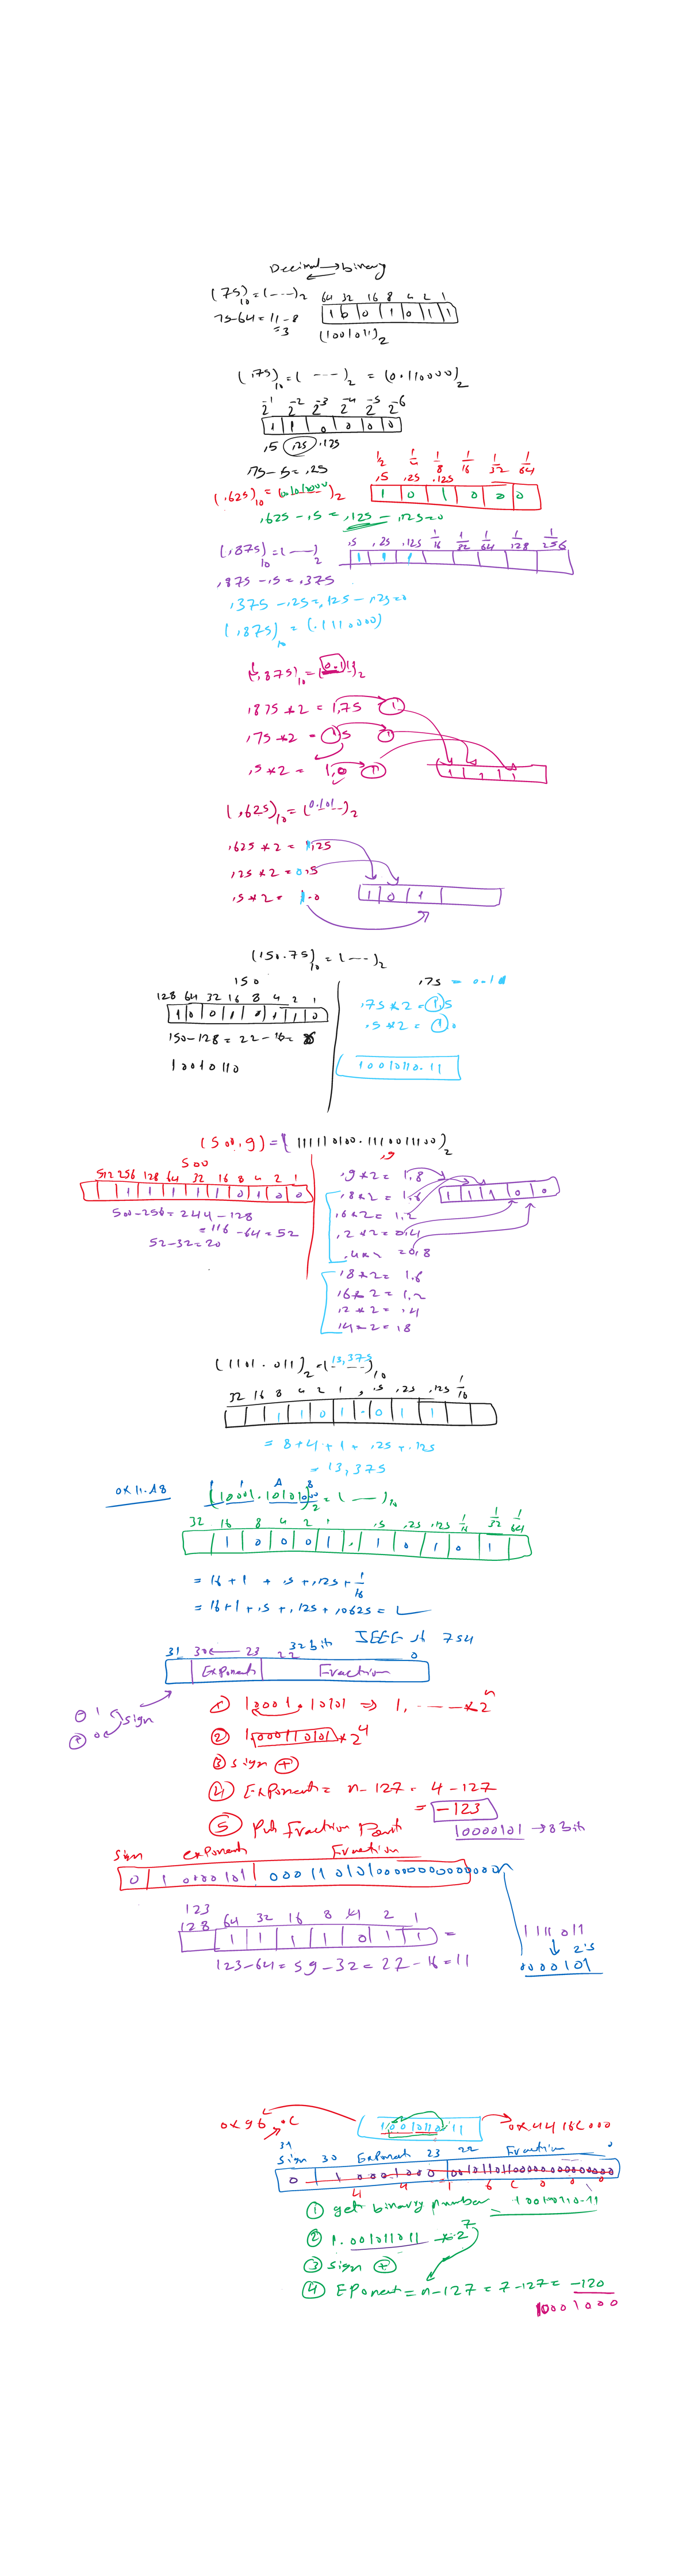 Decimal → binary
(75)10 = (---)2 64 32 16 8 4 2 1
75-64 = 11-8 1 0 0 1 0 1 1
=3 (1001011)2
(.75)10 = ( ---- )2 = (0.110000)2
2^-1 2^-2 2^-3 2^-4 2^-5 2^-6
1 1 0 0 0 0
,5 ,25 .125
.75-.5 = ,25
1/2 1/4 1/8 1/16 1/32 1/64
,5 ,25 .125
(.625)10 = (0.101000)2 1 0 1 0 0 0
.625 - .5 = .125 - .125=0
(.875)10 = (---)2 ,5 ,25 ,125 1/16 1/32 1/64 1/128 1/256
1 1 1
,875 -.5 = .375
.375 -.25 = .125 -.125=0
(.875)10 = (.1110000)
(.875)10 = (0.111)2
.875 * 2 = 1,75 1
.75 *2 = 1.5 1
.5 *2 = 1.0 1
1 1 1
(.625)10 = (0.101--)2
.625 * 2 = 1.25
.25 *2 = 0.5
.5 *2 = 1.0
1 0 1
(150.75)10 = (---)2
150 ,75 = 0.11
128 64 32 16 8 4 2 1
1 0 0 1 0 1 1 0
.75 *2 = 1.5
.5 *2 = 1.0
150-128 = 22-16= 6
10010110 10010110.11
(500,9) = (111110100.1110011100)2
500 ,9
512 256 128 64 32 16 8 4 2 1
1 1 1 1 1 0 1 0 0
500-256 = 244 - 128
= 116 -64 = 52
52-32=20
.9*2 = 1.8
.8*2 = 1.6
.6*2 = 1.2
.2*2 = 0.4
.4*2 = 0.8
1 1 1 0 0
.8*2 = 1.6
.6*2 = 1.2
.2*2 = .4
.4*2 = .8
(1101.011)2 = (13,375)10
32 16 8 4 2 1 , .5 .25 .125 1/16
1 1 0 1 . 0 1 1
= 8+4+1+ .25+.125
= 13,375
0x11.A8 1 1 A 8
(10001.10101000)2 = (---)10
32 16 8 4 2 1 .5 .25 .125 1/16 1/32 1/64
1 0 0 0 1 . 1 0 1 0 1
= 16+1 + .5+.125+ 1/16
= 16+1+.5+.125+.0625 =
32bit IEEE 754
31 30 ← 23 22 0
Exponent Fraction
⊖ 1 sign
⊕ 0
① 10001.10101 ⇒ 1, ----- * 2^n
② 1.000110101 * 2^4
③ sign ⊕
④ Exponent = n-127 = 4-127
= -123
10000101 → 8 bit
⑤ Put Fraction Part
Sign exponent Fraction
0 1 0000101 00011010100000000000000
123
128 64 32 16 8 4 2 1
1 1 1 1 0 1 1 =
123-64 = 59-32 = 27-16 = 11
1111011
↓ 2's
0000101
0x96.C 10010110.11 0x4416C000
31
Sign 30 Exponent 23 22 Fraction 0
0 1 0001000 00101101100000000000000
4 4 1 6 C 0 0 0
① get binary number 10010110.11
② 1.001011011 * 2^7
③ sign ⊕
④ Eponent = n-127 = 7-127 = -120
10001000